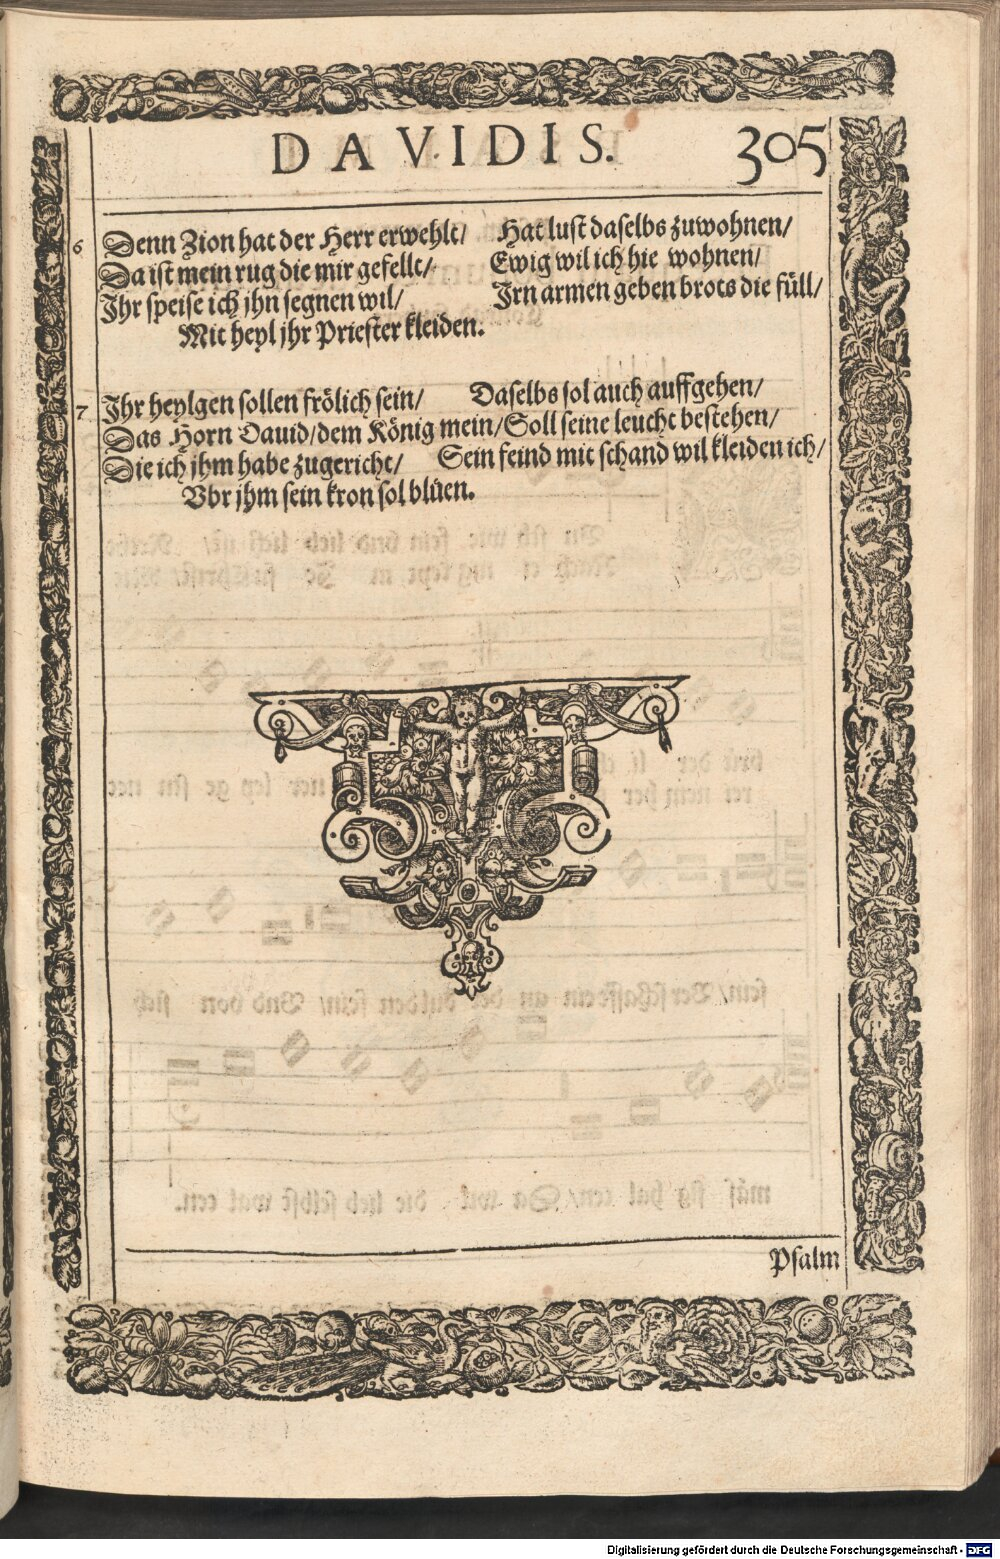 DAVIDIS. 305
6 Denn Zion hat der Herr erwehlt/ Hat lust daselbs zuwohnen/
Da ist mein rug die mir gefellt/ Ewig wil ich hie wohnen/
Ihr speise ich jhn segnen wil/ Irn armen geben brots die füll/
Mit heyl jhr Priester kleiden.
7 Ihr heylgen sollen frölich sein/ Daselbs sol auch auffgehen/
Das Horn Dauid/dem König mein/Soll seine leucht bestehen/
Die ich jhm habe zugericht/ Sein feind mit schand wil kleiden ich/
Vbr jhm sein kron sol blüen.
Psalm
Digitalisierung gefördert durch die Deutsche Forschungsgemeinschaft - DFG